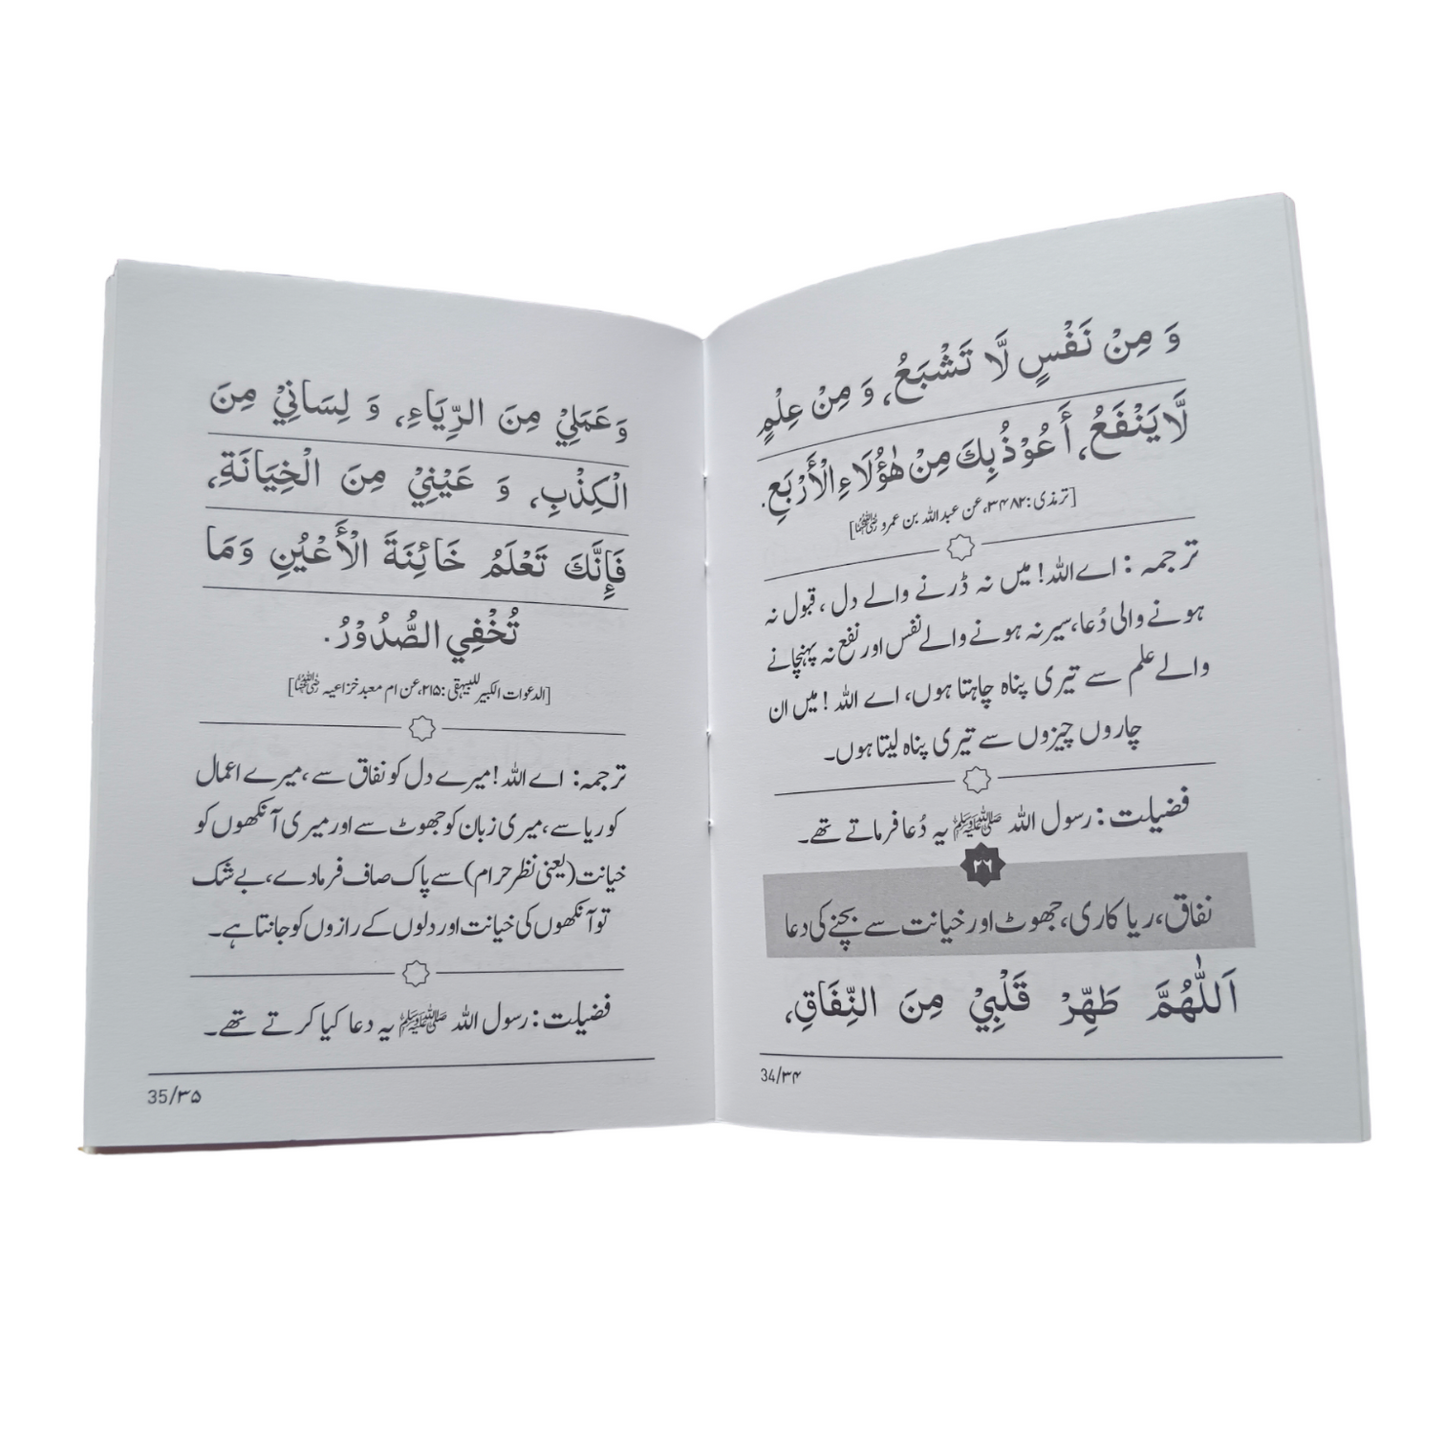 وَ مِنْ نَفْسٍ لَّا تَشْبَعُ، وَ مِنْ عِلْمٍ
لَّا يَنْفَعُ، أَعُوْذُ بِكَ مِنْ هٰؤُلَاءِ الْأَرْبَعِ.
[ترمذی: ۳۴۸۲، عن عبد اللہ بن عمرو رضی اللہ عنہما]
ترجمہ: اے اللہ! میں نہ ڈرنے والے دل، قبول نہ
ہونے والی دُعا، سیر نہ ہونے والے نفس اور نفع نہ پہنچانے
والے علم سے تیری پناہ چاہتا ہوں، اے اللہ! میں ان
چاروں چیزوں سے تیری پناہ لیتا ہوں۔
فضیلت: رسول اللہ ﷺ یہ دُعا فرماتے تھے۔
۲۶
نفاق، ریا کاری، جھوٹ اور خیانت سے بچنے کی دعا
اَللّٰهُمَّ طَهِّرْ قَلْبِيْ مِنَ النِّفَاقِ،
34/۳۴
وَ عَمَلِيْ مِنَ الرِّيَاءِ، وَ لِسَانِيْ مِنَ
الْكِذْبِ، وَ عَيْنِيْ مِنَ الْخِيَانَةِ،
فَإِنَّكَ تَعْلَمُ خَائِنَةَ الْأَعْيُنِ وَمَا
تُخْفِي الصُّدُوْرُ.
[الدعوات الکبیر للبیہقی: ۲۱۵، عن ام معبد خزاعیہ رضی اللہ عنہا]
ترجمہ: اے اللہ! میرے دل کو نفاق سے، میرے اعمال
کو ریا سے، میری زبان کو جھوٹ سے اور میری آنکھوں کو
خیانت (یعنی نظر حرام) سے پاک صاف فرما دے، بے شک
تو آنکھوں کی خیانت اور دلوں کے رازوں کو جانتا ہے۔
فضیلت: رسول اللہ ﷺ یہ دعا کیا کرتے تھے۔
35/۳۵